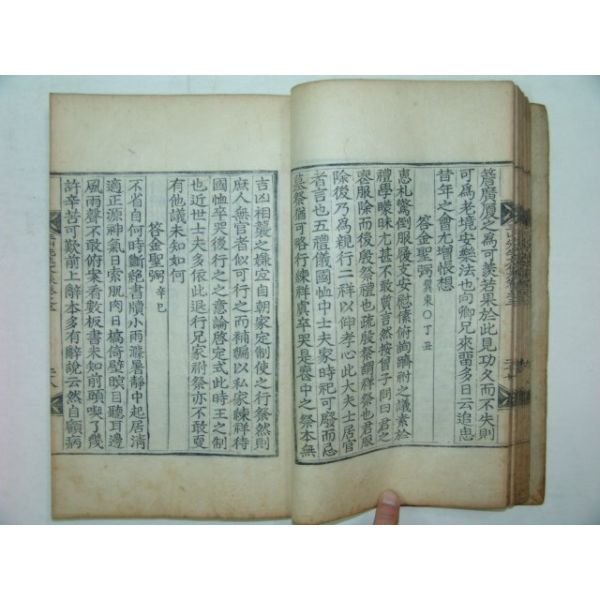 簷廣廈之爲可羨若果於此見功久而不失則
可爲老境安樂法也向卿兄來留多日云追思
昔年之會尤增悵想
答金聖弼 翼東○丁丑
惠札驚倒服後支安慰傃俯詢躋祔之議素於
禮學矇昧尤甚不敢質言然曾子問曰君之
喪服除而後殷祭禮也疏殷祭謂祥祭也君服
除後乃爲親行二祥以仰孝心此大夫士居官
者言也五禮儀國恤中士夫家時祀可廢而忌
墓祭猶可略行練祥虞卒哭是喪中之祭本無
吉凶相襲之嫌定自朝家定制使之行祭然則
庶人無官者似可行之而補編以私家練祥待
國恤卒哭後行之之意論啓定式此時王之制
也近世士夫多依此退行兄家祔祭亦不敢更
有他議未知如何
答金聖弼 辛巳
不省自何時斷絶書牘小雨滌暑靜中起居淸
適正源神氣日索肌肉日槁倚壁瞑目聽耳邊
風雨聲不敢俯案看數板書未知前頭喫了幾
許辛苦可歎前上辭本多有辭說云然自顧病